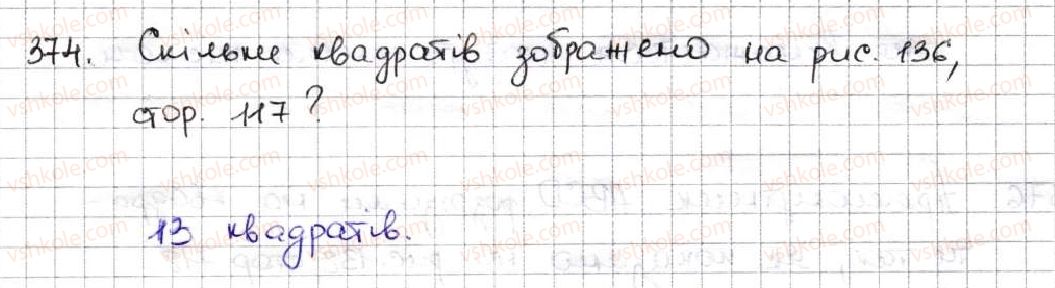 374. Скільки квадратів зображено на рис. 136,
стор. 117?
13 квадратів.